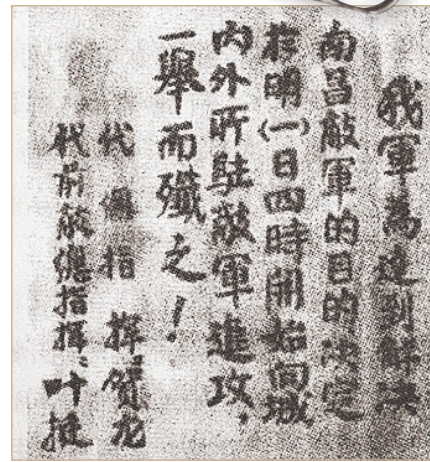 我軍為達到解决
南昌敵軍的目的决定
於明(一)日四時開始向城
内外所駐敵軍進攻，
一舉而殲之！
代總指揮：賀龙
代前敵總指揮：叶挺